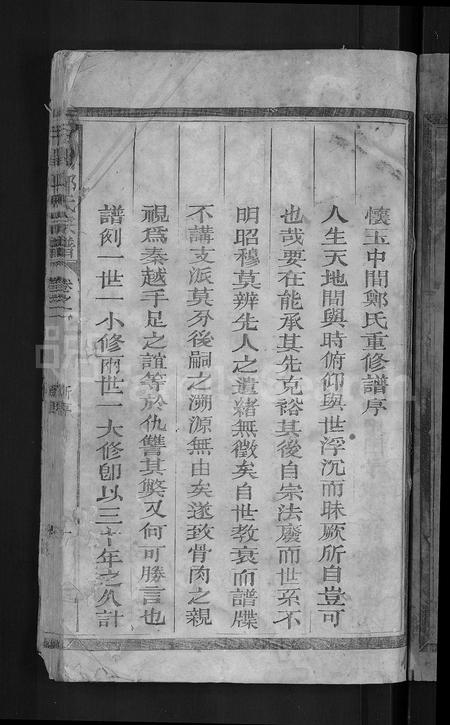 懷玉中閭鄭氏重修譜序
人生天地間與時俯仰與世浮沉而昧厥所自豈可
也哉要在能承其先克裕其後自宗法廢而世系不
明昭穆莫辨先人之遺緒無徵矣自世教衰而譜牒
不講支派莫分後嗣之溯源無由矣遂致骨肉之親
視爲秦越手足之誼等於仇讐其獘又何可勝言也
譜例一世一小修兩世一大修卽以三十年之久計
鄭氏宗譜
卷之一
新序
一